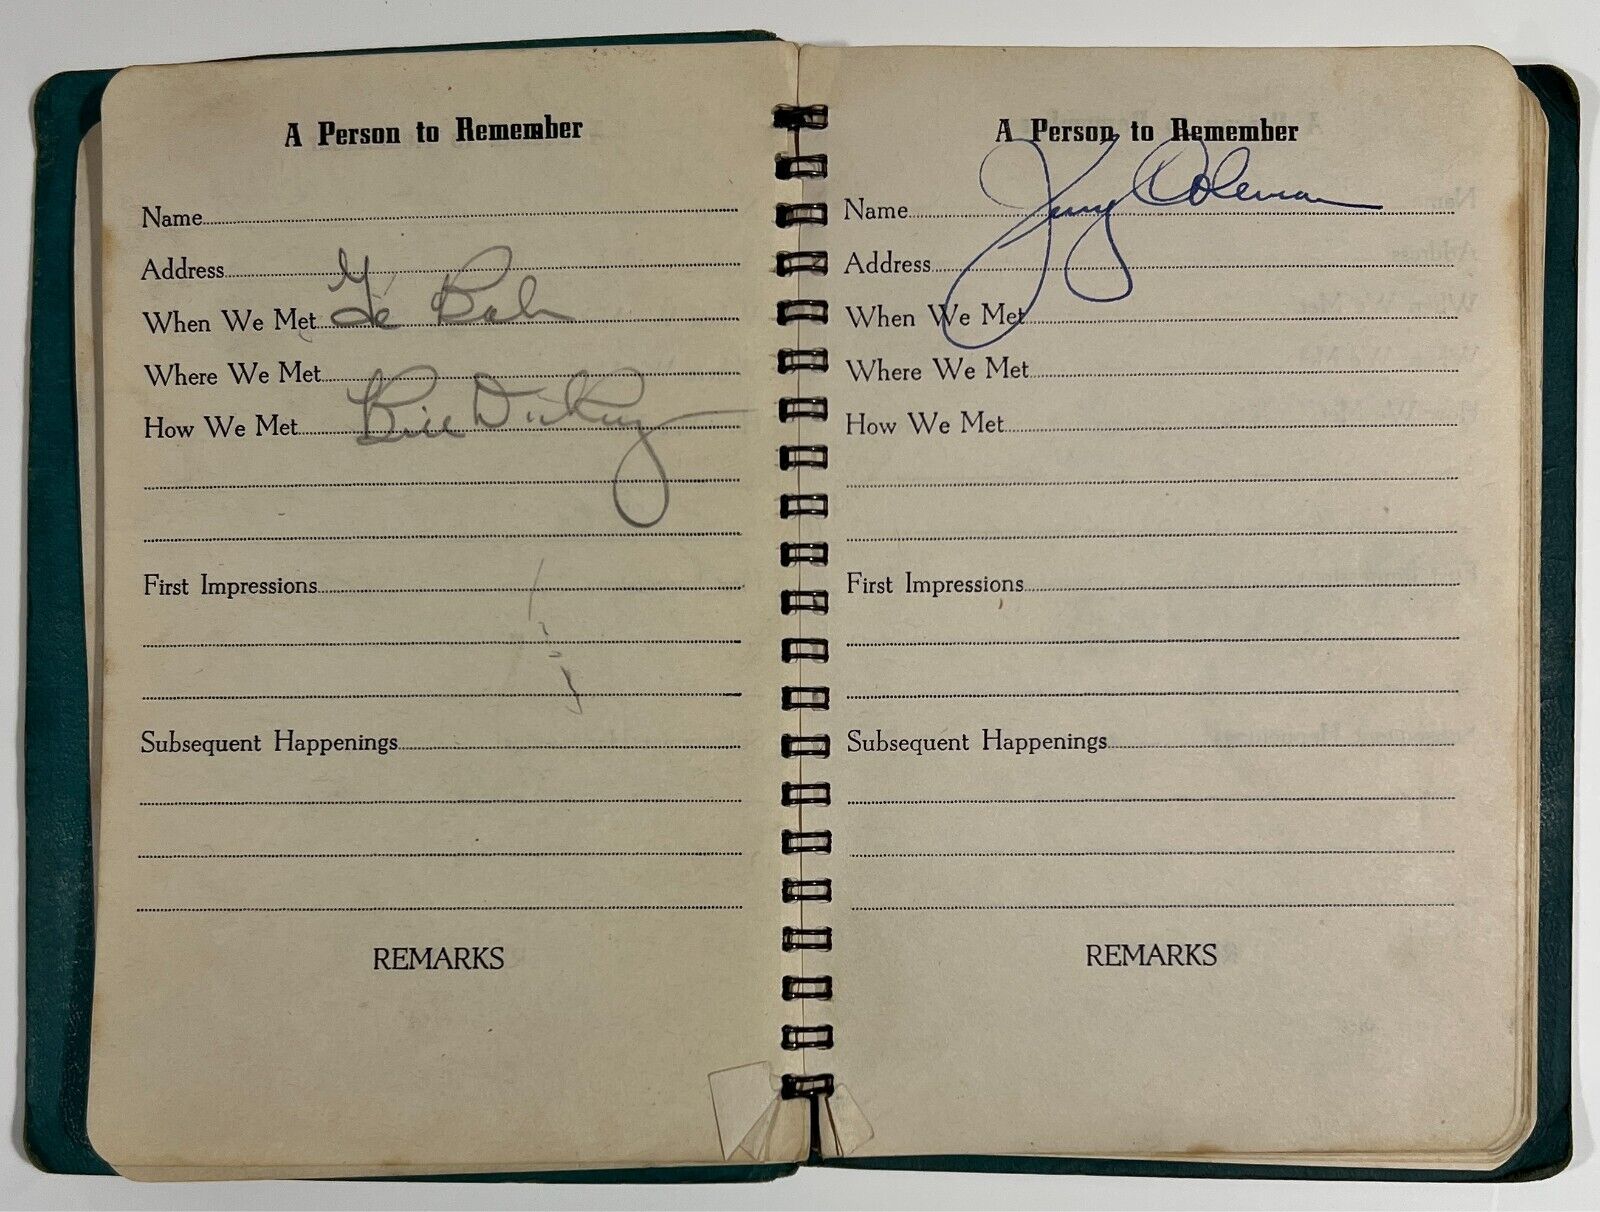 A Person to Remember
Name
Address
When We Met To Bob
Where We Met
How We Met Bill Dickey
First Impressions
Subsequent Happenings
REMARKS
A Person to Remember
Name Jerry Coleman
Address
When We Met
Where We Met
How We Met
First Impressions
Subsequent Happenings
REMARKS